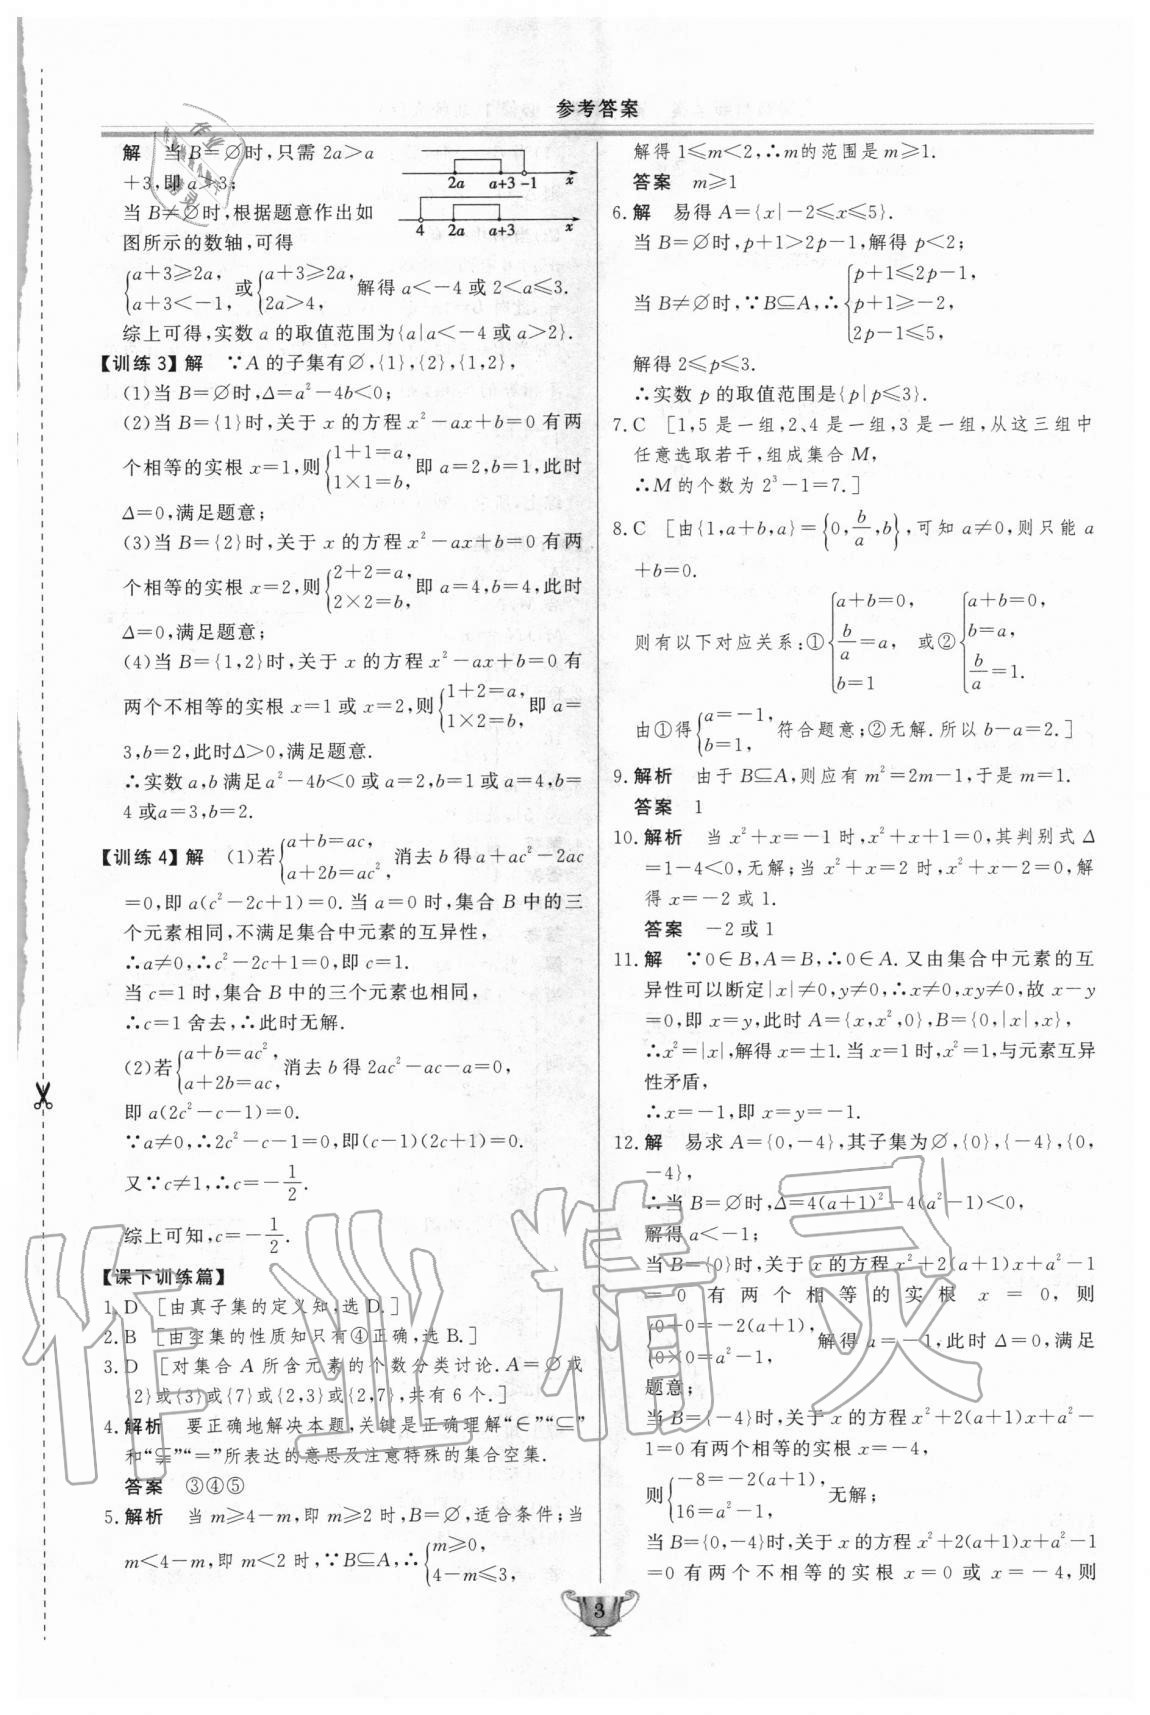 参考答案
解 当B=∅时,只需 2a>a
+3,即 a>3;
当B≠∅时,根据题意作出如
图所示的数轴,可得
2a a+3 -1 x
4 2a a+3 x
{a+3≥2a, a+3<-1, 或{a+3≥2a, 2a>4, 解得 a<-4 或 2<a≤3.
综上可得,实数 a 的取值范围为{a|a<-4 或 a>2}.
【训练 3】解 ∵A 的子集有∅,{1},{2},{1,2},
(1)当 B=∅时,Δ=a²-4b<0;
(2)当 B={1}时,关于 x 的方程 x²-ax+b=0 有两
个相等的实根 x=1,则{1+1=a, 1×1=b, 即 a=2,b=1,此时
Δ=0,满足题意;
(3)当 B={2}时,关于 x 的方程 x²-ax+b=0 有两
个相等的实根 x=2,则{2+2=a, 2×2=b, 即 a=4,b=4,此时
Δ=0,满足题意;
(4)当 B={1,2}时,关于 x 的方程 x²-ax+b=0 有
两个不相等的实根 x=1 或 x=2,则{1+2=a, 1×2=b, 即 a=
3,b=2,此时Δ>0,满足题意.
∴实数 a,b 满足 a²-4b<0 或 a=2,b=1 或 a=4,b=
4 或a=3,b=2.
【训练 4】解 (1)若{a+b=ac, a+2b=ac², 消去 b 得 a+ac²-2ac
=0,即 a(c²-2c+1)=0. 当 a=0 时,集合 B 中的三
个元素相同,不满足集合中元素的互异性,
∴a≠0,∴c²-2c+1=0,即 c=1.
当 c=1 时,集合 B 中的三个元素也相同,
∴c=1 舍去,∴此时无解.
(2)若{a+b=ac², a+2b=ac, 消去 b 得 2ac²-ac-a=0,
即 a(2c²-c-1)=0.
∵a≠0,∴2c²-c-1=0,即(c-1)(2c+1)=0.
又∵c≠1,∴c=-1/2.
综上可知,c=-1/2.
【课下训练篇】
1. D [由真子集的定义知,选 D.]
2. B [由空集的性质知只有④正确,选 B.]
3. D [对集合 A 所含元素的个数分类讨论. A=∅或
{2}或{3}或{7}或{2,3}或{2,7},共有 6 个.]
4. 解析 要正确地解决本题,关键是正确理解“∈”“⊆”
和“⫋”“=”所表达的意思及注意特殊的集合空集.
答案 ③④⑤
5. 解析 当 m≥4-m,即 m≥2 时,B=∅,适合条件;当
m<4-m,即 m<2 时,∵B⊆A,∴{m≥0, 4-m≤3,
解得 1≤m<2,∴m的范围是 m≥1.
答案 m≥1
6. 解 易得 A={x|-2≤x≤5}.
当 B=∅时,p+1>2p-1,解得 p<2;
当 B≠∅时,∵B⊆A,∴{p+1≤2p-1, p+1≥-2, 2p-1≤5,
解得 2≤p≤3.
∴实数 p 的取值范围是{p|p≤3}.
7. C [1,5 是一组,2、4 是一组,3 是一组,从这三组中
任意选取若干,组成集合 M,
∴M 的个数为 2³-1=7.]
8. C [由{1,a+b,a}={0,b/a,b},可知 a≠0,则只能 a
+b=0.
则有以下对应关系:①{a+b=0, b/a=a, b=1 或②{a+b=0, b=a, b/a=1.
由①得{a=-1, b=1, 符合题意;②无解.所以 b-a=2.]
9. 解析 由于 B⊆A,则应有 m²=2m-1,于是 m=1.
答案 1
10. 解析 当 x²+x=-1 时,x²+x+1=0,其判别式 Δ
=1-4<0,无解;当 x²+x=2 时,x²+x-2=0,解
得 x=-2 或 1.
答案 -2 或 1
11. 解 ∵0∈B,A=B,∴0∈A. 又由集合中元素的互
异性可以断定|x|≠0,y≠0,∴x≠0,xy≠0,故 x-y
=0,即 x=y,此时 A={x,x²,0},B={0,|x|,x},
∴x²=|x|,解得 x=±1.当 x=1 时,x²=1,与元素互异
性矛盾,
∴x=-1,即 x=y=-1.
12. 解 易求 A={0,-4},其子集为∅,{0},{-4},{0,
-4},
∴当 B=∅时,Δ=4(a+1)²-4(a²-1)<0,
解得 a<-1;
当 B={0}时,关于 x 的方程 x²+2(a+1)x+a²-1
=0 有两个相等的实根 x=0,则
{0+0=-2(a+1), 0×0=a²-1, 解得 a=-1,此时 Δ=0,满足
题意;
当 B={-4}时,关于 x 的方程 x²+2(a+1)x+a²-
1=0 有两个相等的实根 x=-4,
则{-8=-2(a+1), 16=a²-1, 无解;
当 B={0,-4}时,关于 x 的方程 x²+2(a+1)x+a²-1
=0 有两个不相等的实根 x=0 或 x=-4,则
3
作业精灵